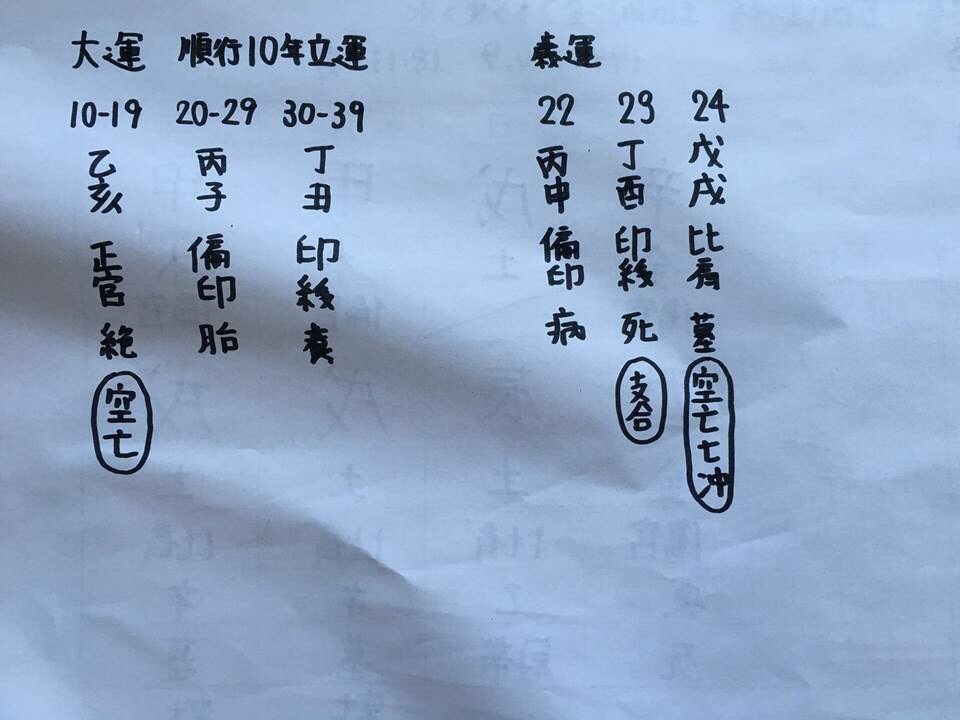 大運 順行10年立運
10-19
乙亥
正官
絶
空亡
20-29
丙子
偏印
胎
30-39
丁丑
印綬
養
歳運
22
丙申
偏印
病
23
丁酉
印綬
死
支合
24
戊戌
比肩
墓
空亡七冲